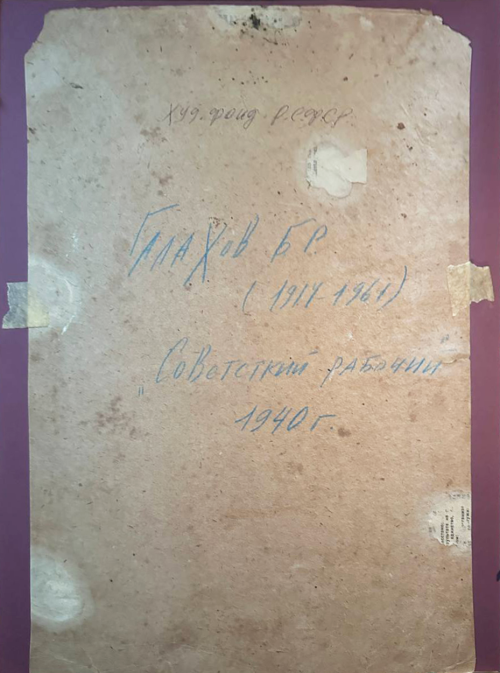 Худ. фонд. РСФСР
Галахов Б Р
(1914-1964)
"Советсткий рабочий"
1940 г.